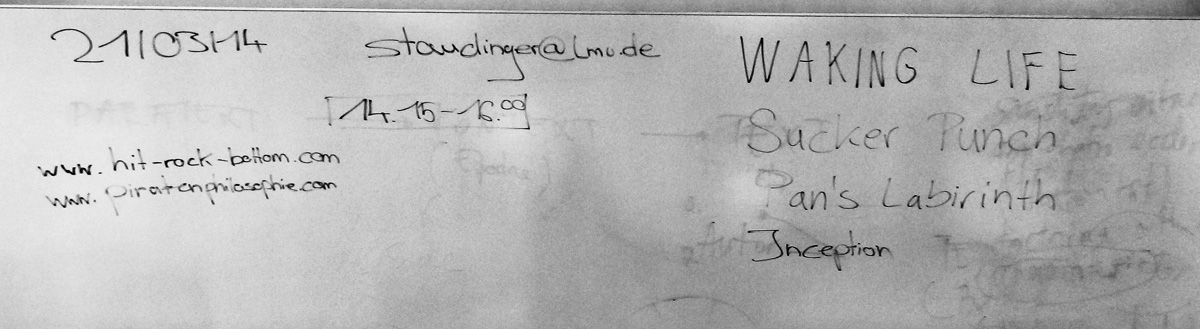 21/03/14
staudinger@lmu.de
14.15-16.00
www.hit-rock-bottom.com
www.piratenphilosophie.com
WAKING LIFE
Sucker Punch
Pan's Labirinth
Inception